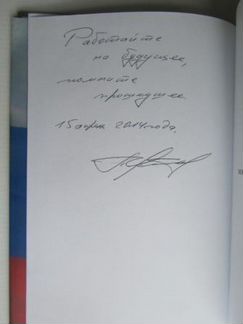 Работайте
на будущее,
помните
прошедшее.
15 апр 2014 года.